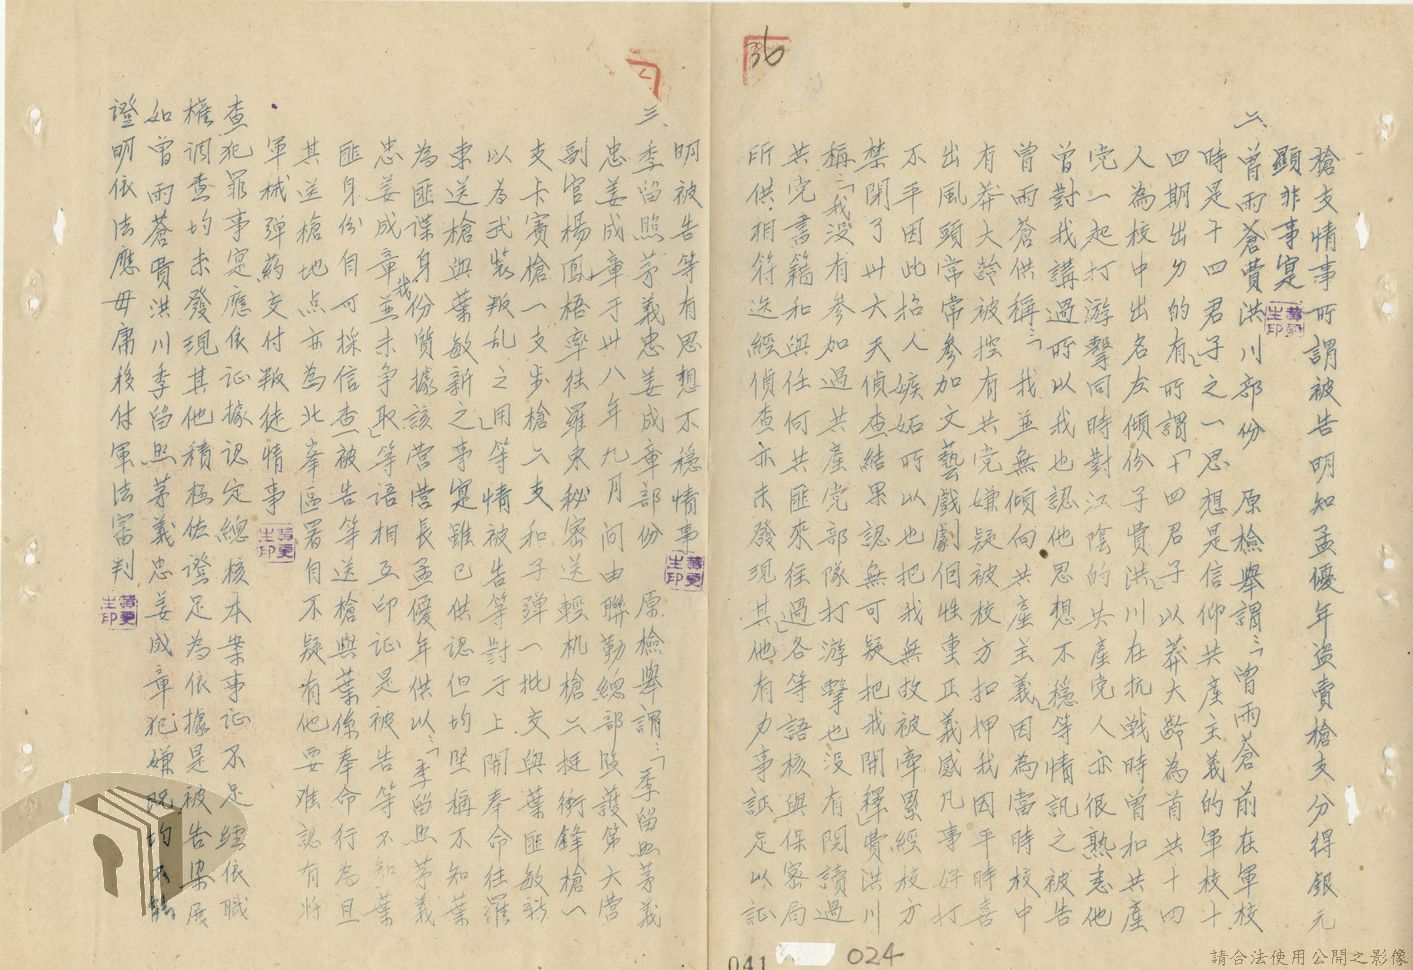 36
槍支情事所謂被告明知孟優年盜賣槍支分得銀元
顯非事寔
二、曾雨蒼費洪川部份　原檢舉謂：「曾雨蒼前在軍校
時是十四君子之一思想是信仰共產主義的軍校十
四期出身的有所謂「十四君子」以莽大齡為首共十四
人為校中出名左傾份子費洪川在抗戰時曾和共產
党一起打游擊同時對江陰的共產党人亦很熟悉他
曾對我講過所以我也認他思想不穩」等情訊之被告
曾雨蒼供稱：「我並無傾向共產主義因為當時校中
有莽大齡被控有共党嫌疑被校方扣押我因平時喜
出風頭常常參加文藝戲劇個性重正義感凡事好打
不平因此招人嫉妬所以也把我無故被牽累經校方
禁閉了卅六天偵查結果認無可疑把我開釋」費洪川
稱：「我没有參加過共產党部隊打游擊也没有閱讀過
共党書籍和與任何共匪來往過」各等語核與保密局
所供相符迭經偵查亦未發現其他有力事証足以証
明被告等有思想不穩情事
三、季留照茅義忠姜成章部份　原檢舉謂：「季留照茅義
忠姜成章于卅八年九月間由聯勤總部監護第六營
副官楊鳳梧率往羅東秘密送輕机槍二挺衝鋒槍一
支卡賓槍一支步槍六支和子彈一批交與葉匪敏新
以為武裝叛乱之用」等情被告等對于上開奉命往羅
東送槍與葉敏新之事寔雖已供認但均堅稱不知葉
為匪諜身份質據該營營長孟優年供以：「季留照茅義
忠姜成章我並未争取」等語相互印証是被告等不知葉
匪身份自可採信查被告等送槍與葉係奉命行為且
其送槍地点亦為北峯區署自不疑有他要难認有將
軍械彈药交付叛徒情事
查犯罪事寔應依証據認定總核本案事証不足經依職
權調查均未發現其他積極佐證足為依據是被告梁展
如曾雨蒼費洪川季留照茅義忠姜成章犯嫌既均不能
證明依法應毋庸移付軍法審判
041
024
請合法使用公開之影像